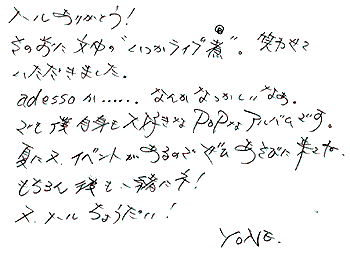 メールありがとう!
さのおに文ゆの"いつかライブ煮"。笑わせて
いただきました。
adessoか……。なんかなつかしいなぁ。
でも僕自身も大好きなPOPなアルバムです。
夏に又、イベントがあるのでぜひあそびに来てね。
もちろん 一緒にネ!
又、メールちょうだい!
YONE.